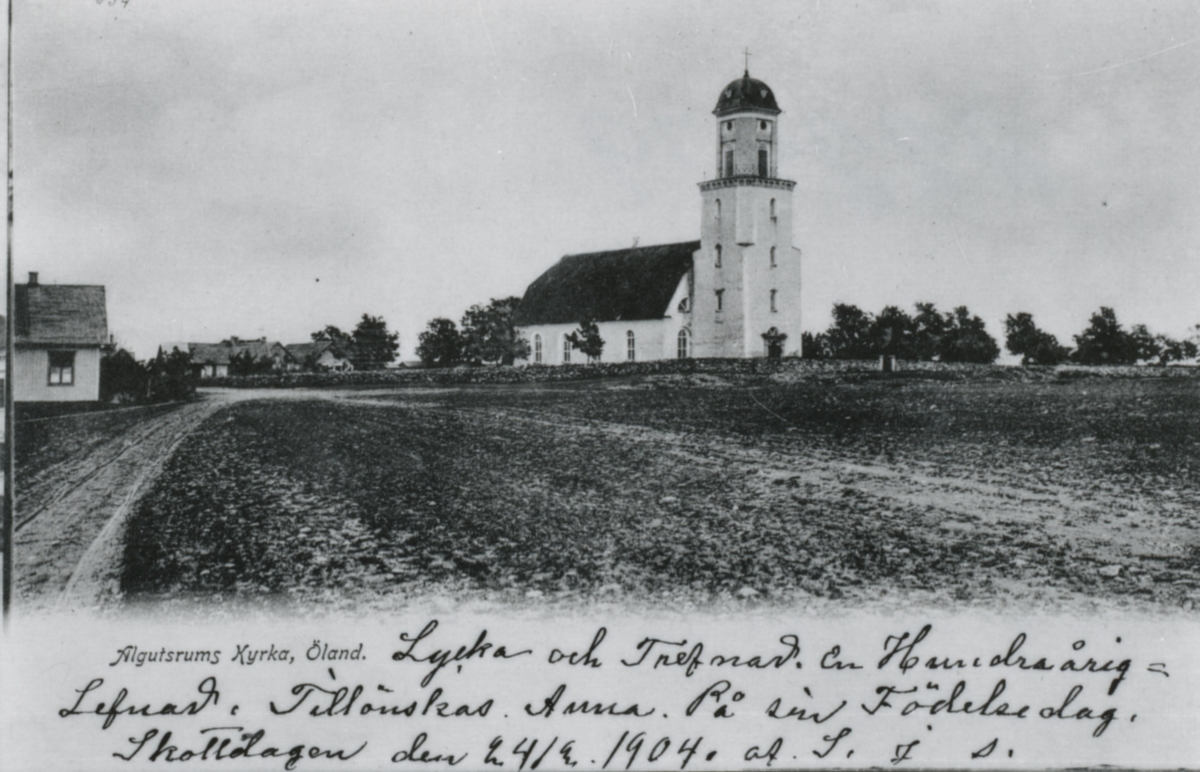 Algutsrums Kyrka, Öland. Lycka och Trefnad. En Hundraårig=
Lefnad. Tillönskas. Anna. På sin Födelsedag.
Skottdagen den 24/2. 1904. af. S. J. S.